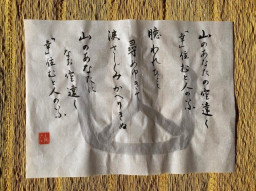 山のあなたの空遠く
「幸」住むと人のいふ
噫われひとと
尋めゆきて
涙さしぐみかへりきぬ
山のあなたに
なほ遠く
「幸」住むと人のいふ